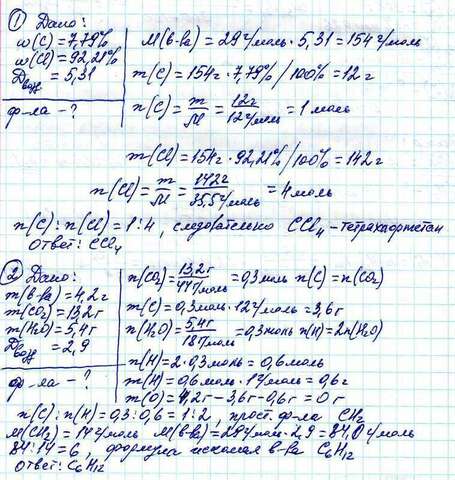 ① Дано:
w(C) = 7,79%
w(Cl) = 92,21%
Dвозд = 5,31
ф-ла - ?
M(в-ва) = 29 г/моль · 5,31 = 154 г/моль
m(C) = 154г · 7,79% / 100% = 12 г
n(C) = m/M = 12г / 12 г/моль = 1 моль
m(Cl) = 154г · 92,21% / 100% = 142 г
n(Cl) = m/M = 142г / 35,5 г/моль = 4 моль
n(C) : n(Cl) = 1:4, следовательно CCl₄ - тетрахлорметан
Ответ: CCl₄
② Дано:
m(в-ва) = 4,2 г
m(CO₂) = 13,2 г
m(H₂O) = 5,4 г
Dвозд = 2,9
ф-ла - ?
n(CO₂) = 13,2 г / 44 г/моль = 0,3 моль n(C) = n(CO₂)
m(C) = 0,3 моль · 12 г/моль = 3,6 г
n(H₂O) = 5,4 г / 18 г/моль = 0,3 моль n(H) = 2n(H₂O)
n(H) = 2 · 0,3 моль = 0,6 моль
m(H) = 0,6 моль · 1 г/моль = 0,6 г
m(O) = 4,2г - 3,6г - 0,6г = 0 г
n(C) : n(H) = 0,3 : 0,6 = 1:2, прост. ф-ла CH₂
M(CH₂) = 14 г/моль M(в-ва) = 29 г/моль · 2,9 = 84,0 г/моль
84 : 14 = 6, формула искомая в-ва C₆H₁₂
ответ: C₆H₁₂